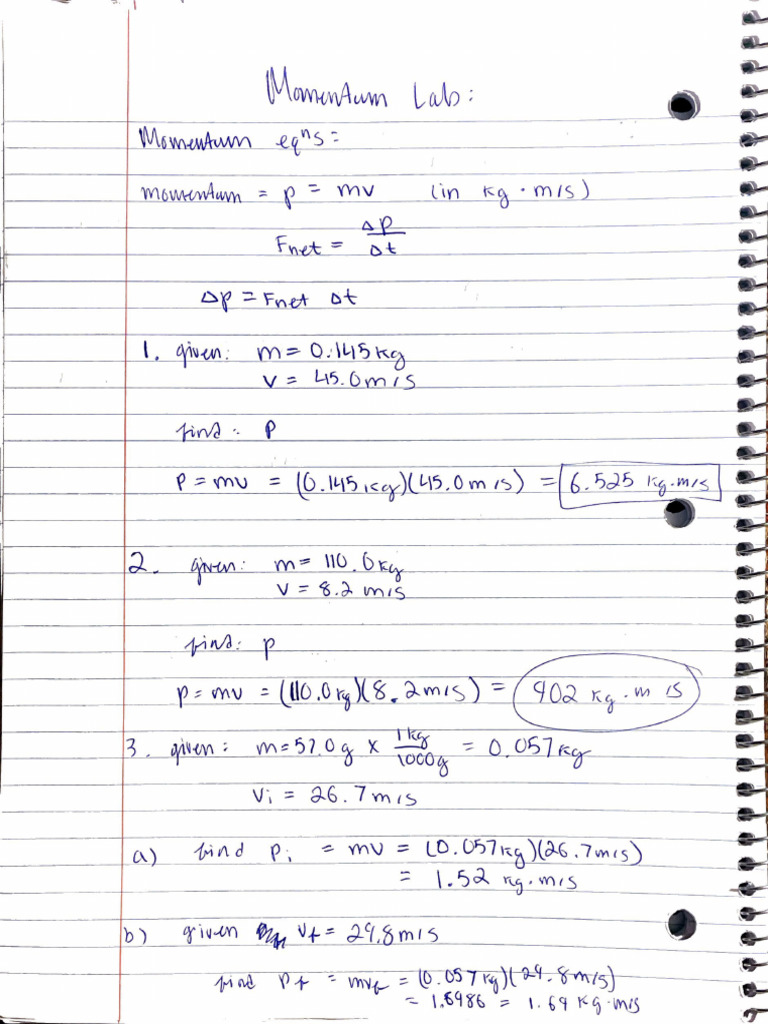 Momentum Lab:
Momentum eqⁿs:
momentum = p = mv (in kg · m/s)
Fnet = Δp/Δt
Δp = Fnet Δt
1. given: m = 0.145 kg
v = 45.0 m/s
find: p
P = mv = (0.145 kg)(45.0 m/s) = 6.525 kg·m/s
2. given: m = 110.0 kg
v = 8.2 m/s
find: p
p = mv = (110.0 kg)(8.2 m/s) = 902 kg·m/s
3. given: m = 57.0 g × 1 kg/1000 g = 0.057 kg
Vi = 26.7 m/s
a) find Pi = mv = (0.057 kg)(26.7 m/s)
= 1.52 kg·m/s
b) given vf = 29.8 m/s
find Pf = mvf = (0.057 kg)(29.8 m/s)
= 1.6986 = 1.69 kg·m/s